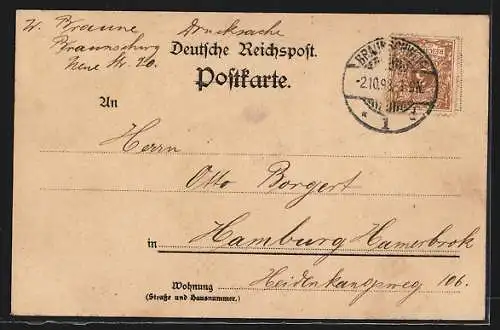 W. Braune Drucksache
Braunschweig
Neue Str. 20.
Deutsche Reichspost.
Postkarte.
BRAUNSCHWEIG
-2.10.98
* 1
An
Herrn
Otto Borgert
in Hamburg Hamerbrok
Wohnung Heidenkangsweg 106.
(Straße und Hausnummer.)